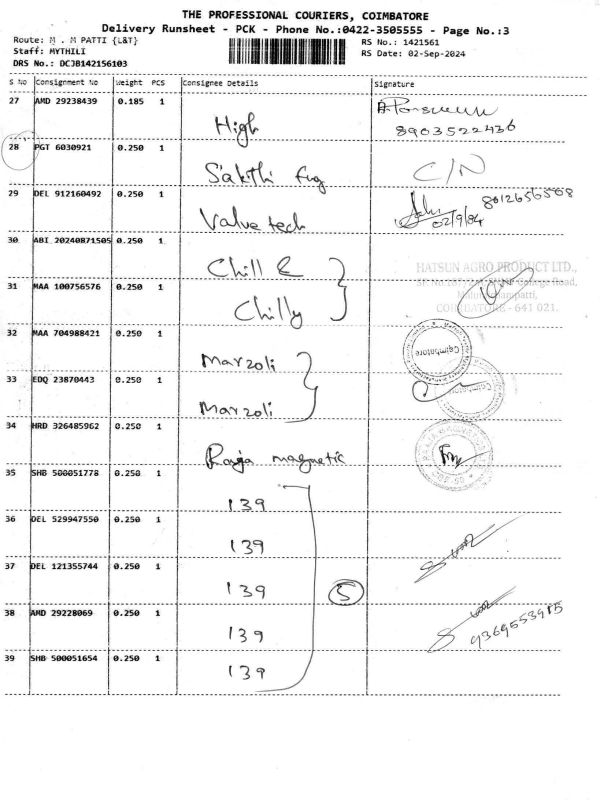 THE PROFESSIONAL COURIERS, COIMBATORE
Delivery Runsheet - PCK - Phone No.:0422-3505555 - Page No.:3
Route: M . M PATTI {L&T}
RS No.: 1421561
Staff: MYTHILI
RS Date: 02-Sep-2024
DRS No.: DCJB142156103
S No Consignment No Weight PCS Consignee Details Signature
27 AMD 29238439 0.185 1 High
8903522436
28 PGT 6030921 0.250 1 Sakthi C/N
29 DEL 912160492 0.250 1 Value tech 8012656508
02/9/04
30 ABI 20240871505 0.250 1 Chill &
HATSUN AGRO PRODUCT LTD.,
31 MAA 100756576 0.250 1 Chilly
COIMBATORE - 641 021.
32 MAA 704988421 0.250 1 Marzoli
Coimbatore
33 EDQ 23870443 0.250 1 Marzoli
Coimbatore
34 HRD 326485962 0.250 1 Raja magnetic
35 SHB 500051778 0.250 1 139
36 DEL 529947550 0.250 1 139
37 DEL 121355744 0.250 1 139 5
38 AMD 29228069 0.250 1 139
9369553915
39 SHB 500051654 0.250 1 139